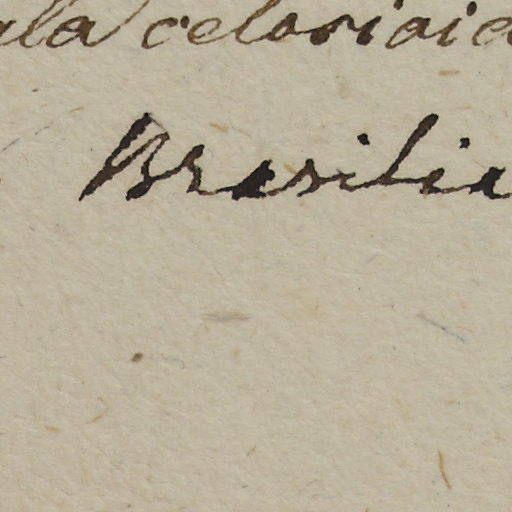 ala celosioid
Brasilia